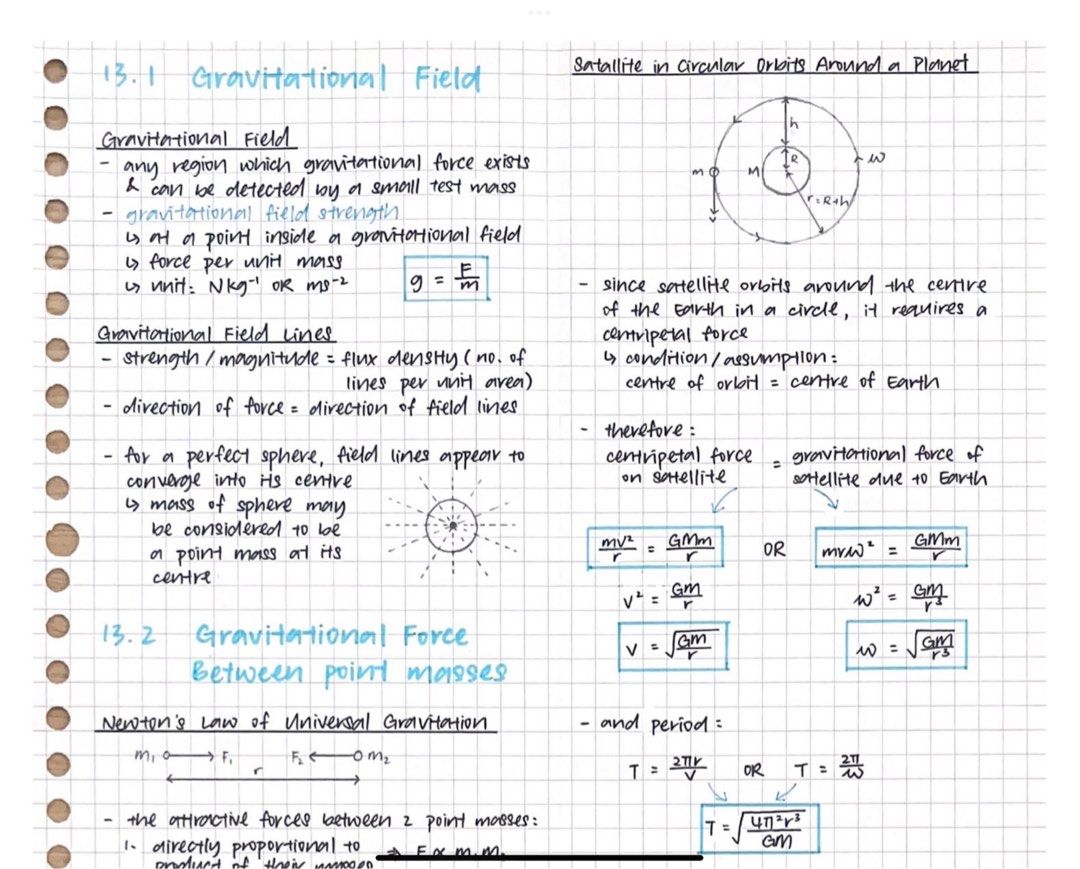 13.1 Gravitational Field
Gravitational Field
- any region which gravitational force exists
& can be detected by a small test mass
- gravitational field strength
↳ at a point inside a gravitational field
↳ force per unit mass
↳ unit: Nkg⁻¹ OR ms⁻²
g = F/m
Gravitational Field Lines
- strength / magnitude = flux density (no. of
lines per unit area)
- direction of force = direction of field lines
- for a perfect sphere, field lines appear to
converge into its centre
↳ mass of sphere may
be considered to be
a point mass at its
centre
13.2 Gravitational Force
Between point masses
Newton's Law of Universal Gravitation
m₁ F₁ F₂ m₂
r
- the attractive forces between 2 point masses:
1. directly proportional to → F ∝ m₁m₂
product of their
Satallite in Circular Orbits Around a Planet
h
R
m M ω
r = R+h
- since satellite orbits around the centre
of the Earth in a circle, it requires a
centripetal force
↳ condition / assumption:
centre of orbit = centre of Earth
- therefore:
centripetal force = gravitational force of
on satellite satellite due to Earth
mv²/r = GMm/r OR mrω² = GMm/r
v² = GM/r ω² = GM/r³
v = √(GM/r) ω = √(GM/r³)
- and period:
T = 2πr/v OR T = 2π/ω
T = √(4π²r³/GM)